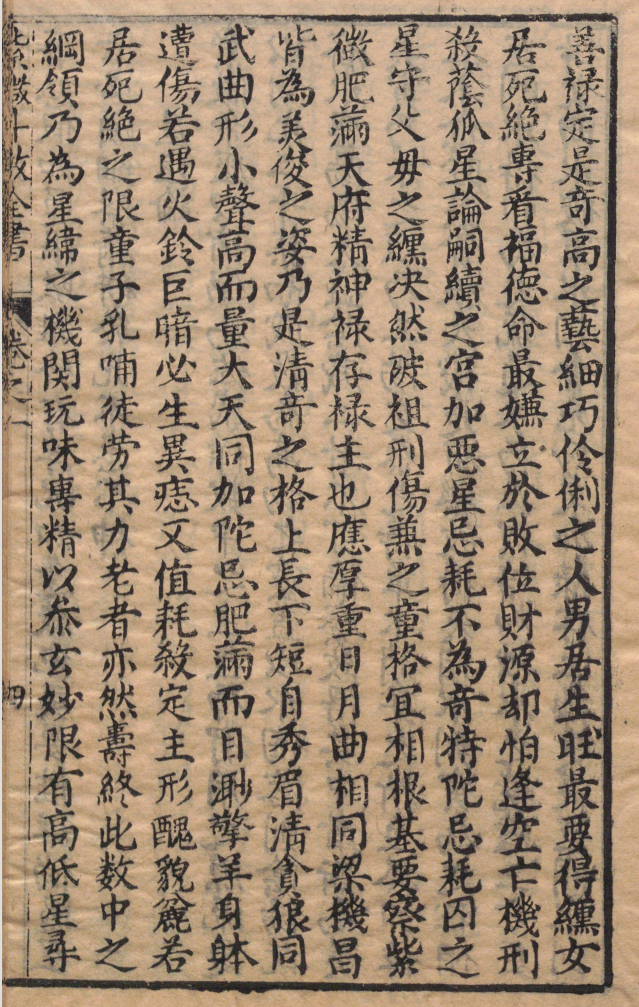 善禄定是奇高之藝細巧伶俐之人男居生旺最要得纏女
居死絶專看福德命最嫌立於敗位財源却怕逢空亡機刑
殺蔭孤星論嗣續之宮加惡星忌耗不為奇特陀忌耗囚之
星守父母之纏决然破祖刑傷兼之童格宜相根基要察紫
微肥滿天府精神禄存禄主也應厚重日月曲相同梁機昌
皆為美俊之姿乃是清奇之格上長下短目秀眉清貪狼同
武曲形小聲高而量大天同加陀忌肥滿而目渺擎羊身躰
遭傷若遇火鈴巨暗必生異痣又值耗殺定主形醜貌麄若
居死絶之限童子乳哺徒劳其力老者亦然壽終此数中之
綱領乃為星緯之機関玩味專精以叅玄妙限有高低星尋
紫微斗数全書
卷之一
四